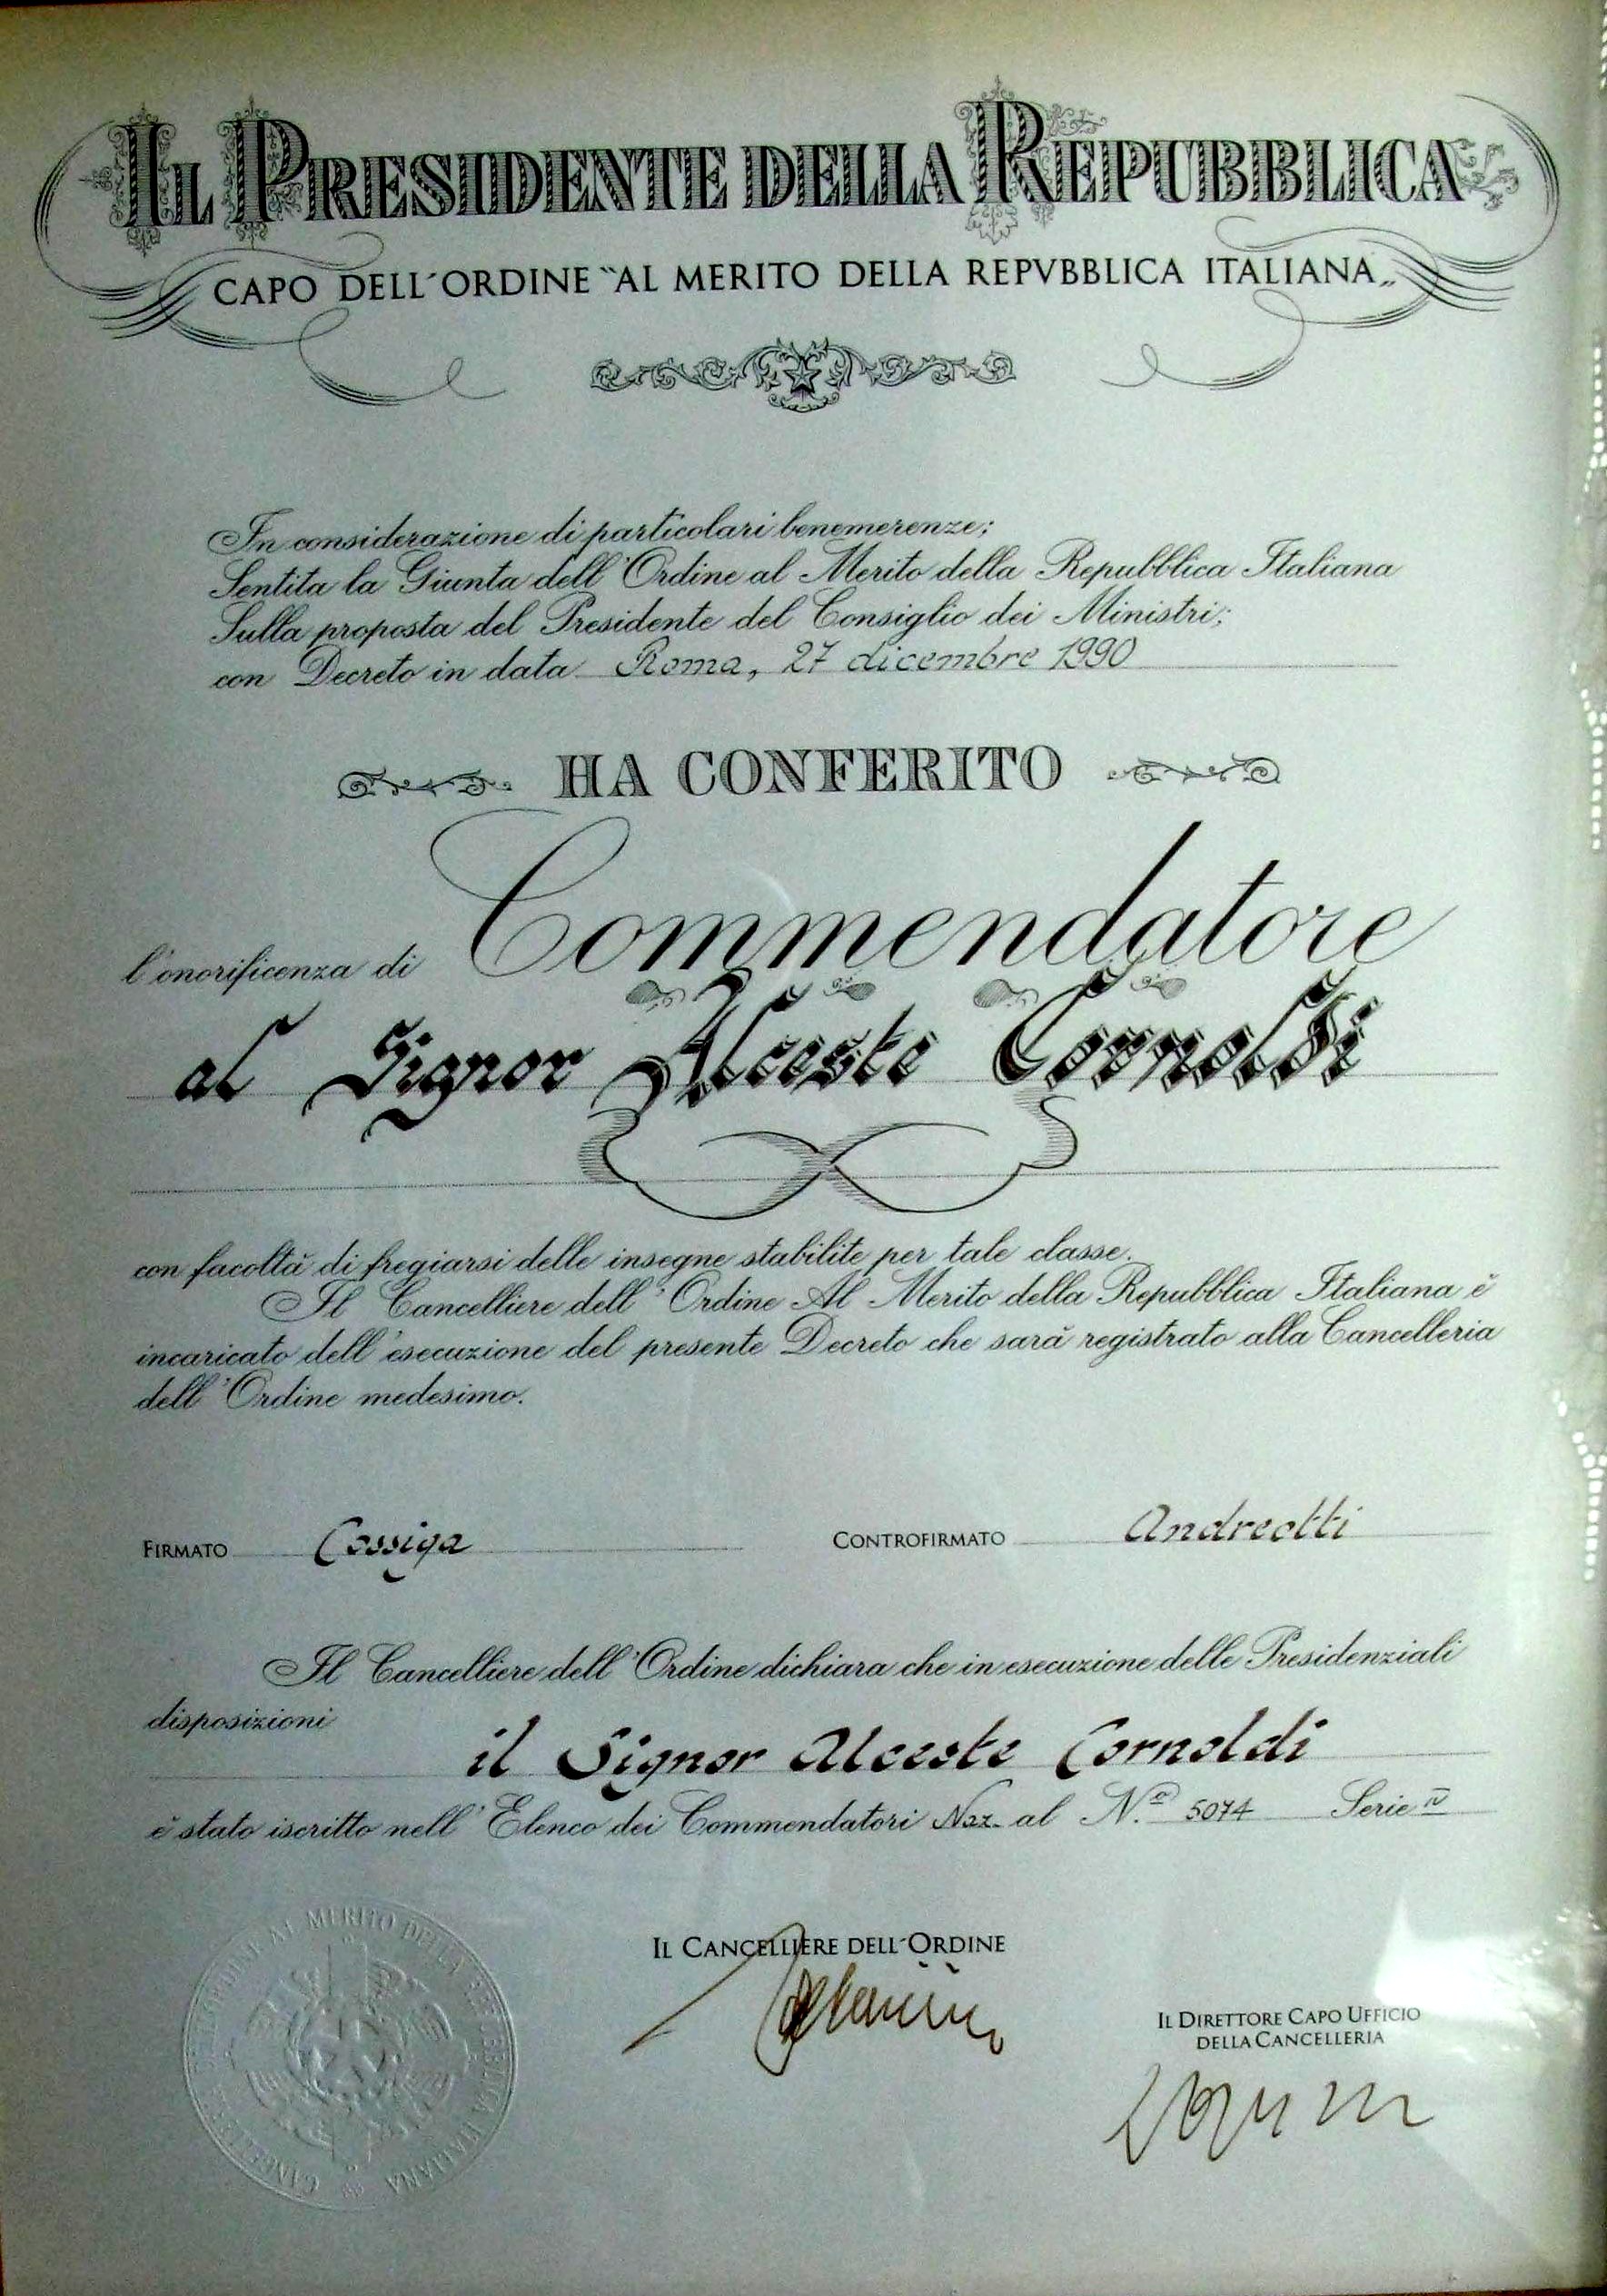 IL PRESIDENTE DELLA REPUBBLICA
CAPO DELL'ORDINE "AL MERITO DELLA REPVBBLICA ITALIANA„
In considerazione di particolari benemerenze;
Sentita la Giunta dell'Ordine al Merito della Repubblica Italiana
Sulla proposta del Presidente del Consiglio dei Ministri;
con Decreto in data Roma, 27 dicembre 1990
HA CONFERITO
l'onorificenza di Commendatore
al Signor Alceste Cornoldi
con facoltà di fregiarsi delle insegne stabilite per tale classe.
Il Cancelliere dell'Ordine Al Merito della Repubblica Italiana è
incaricato dell'esecuzione del presente Decreto che sarà registrato alla Cancelleria
dell'Ordine medesimo.
FIRMATO Cossiga CONTROFIRMATO Andreotti
Il Cancelliere dell'Ordine dichiara che in esecuzione delle Presidenziali
disposizioni
il Signor Alceste Cornoldi
è stato iscritto nell'Elenco dei Commendatori Naz. al N.º 5074 Serie IV
IL CANCELLIERE DELL'ORDINE
IL DIRETTORE CAPO UFFICIO
DELLA CANCELLERIA
CANCELLERIA DELL'ORDINE AL MERITO DELLA REPUBBLICA ITALIANA